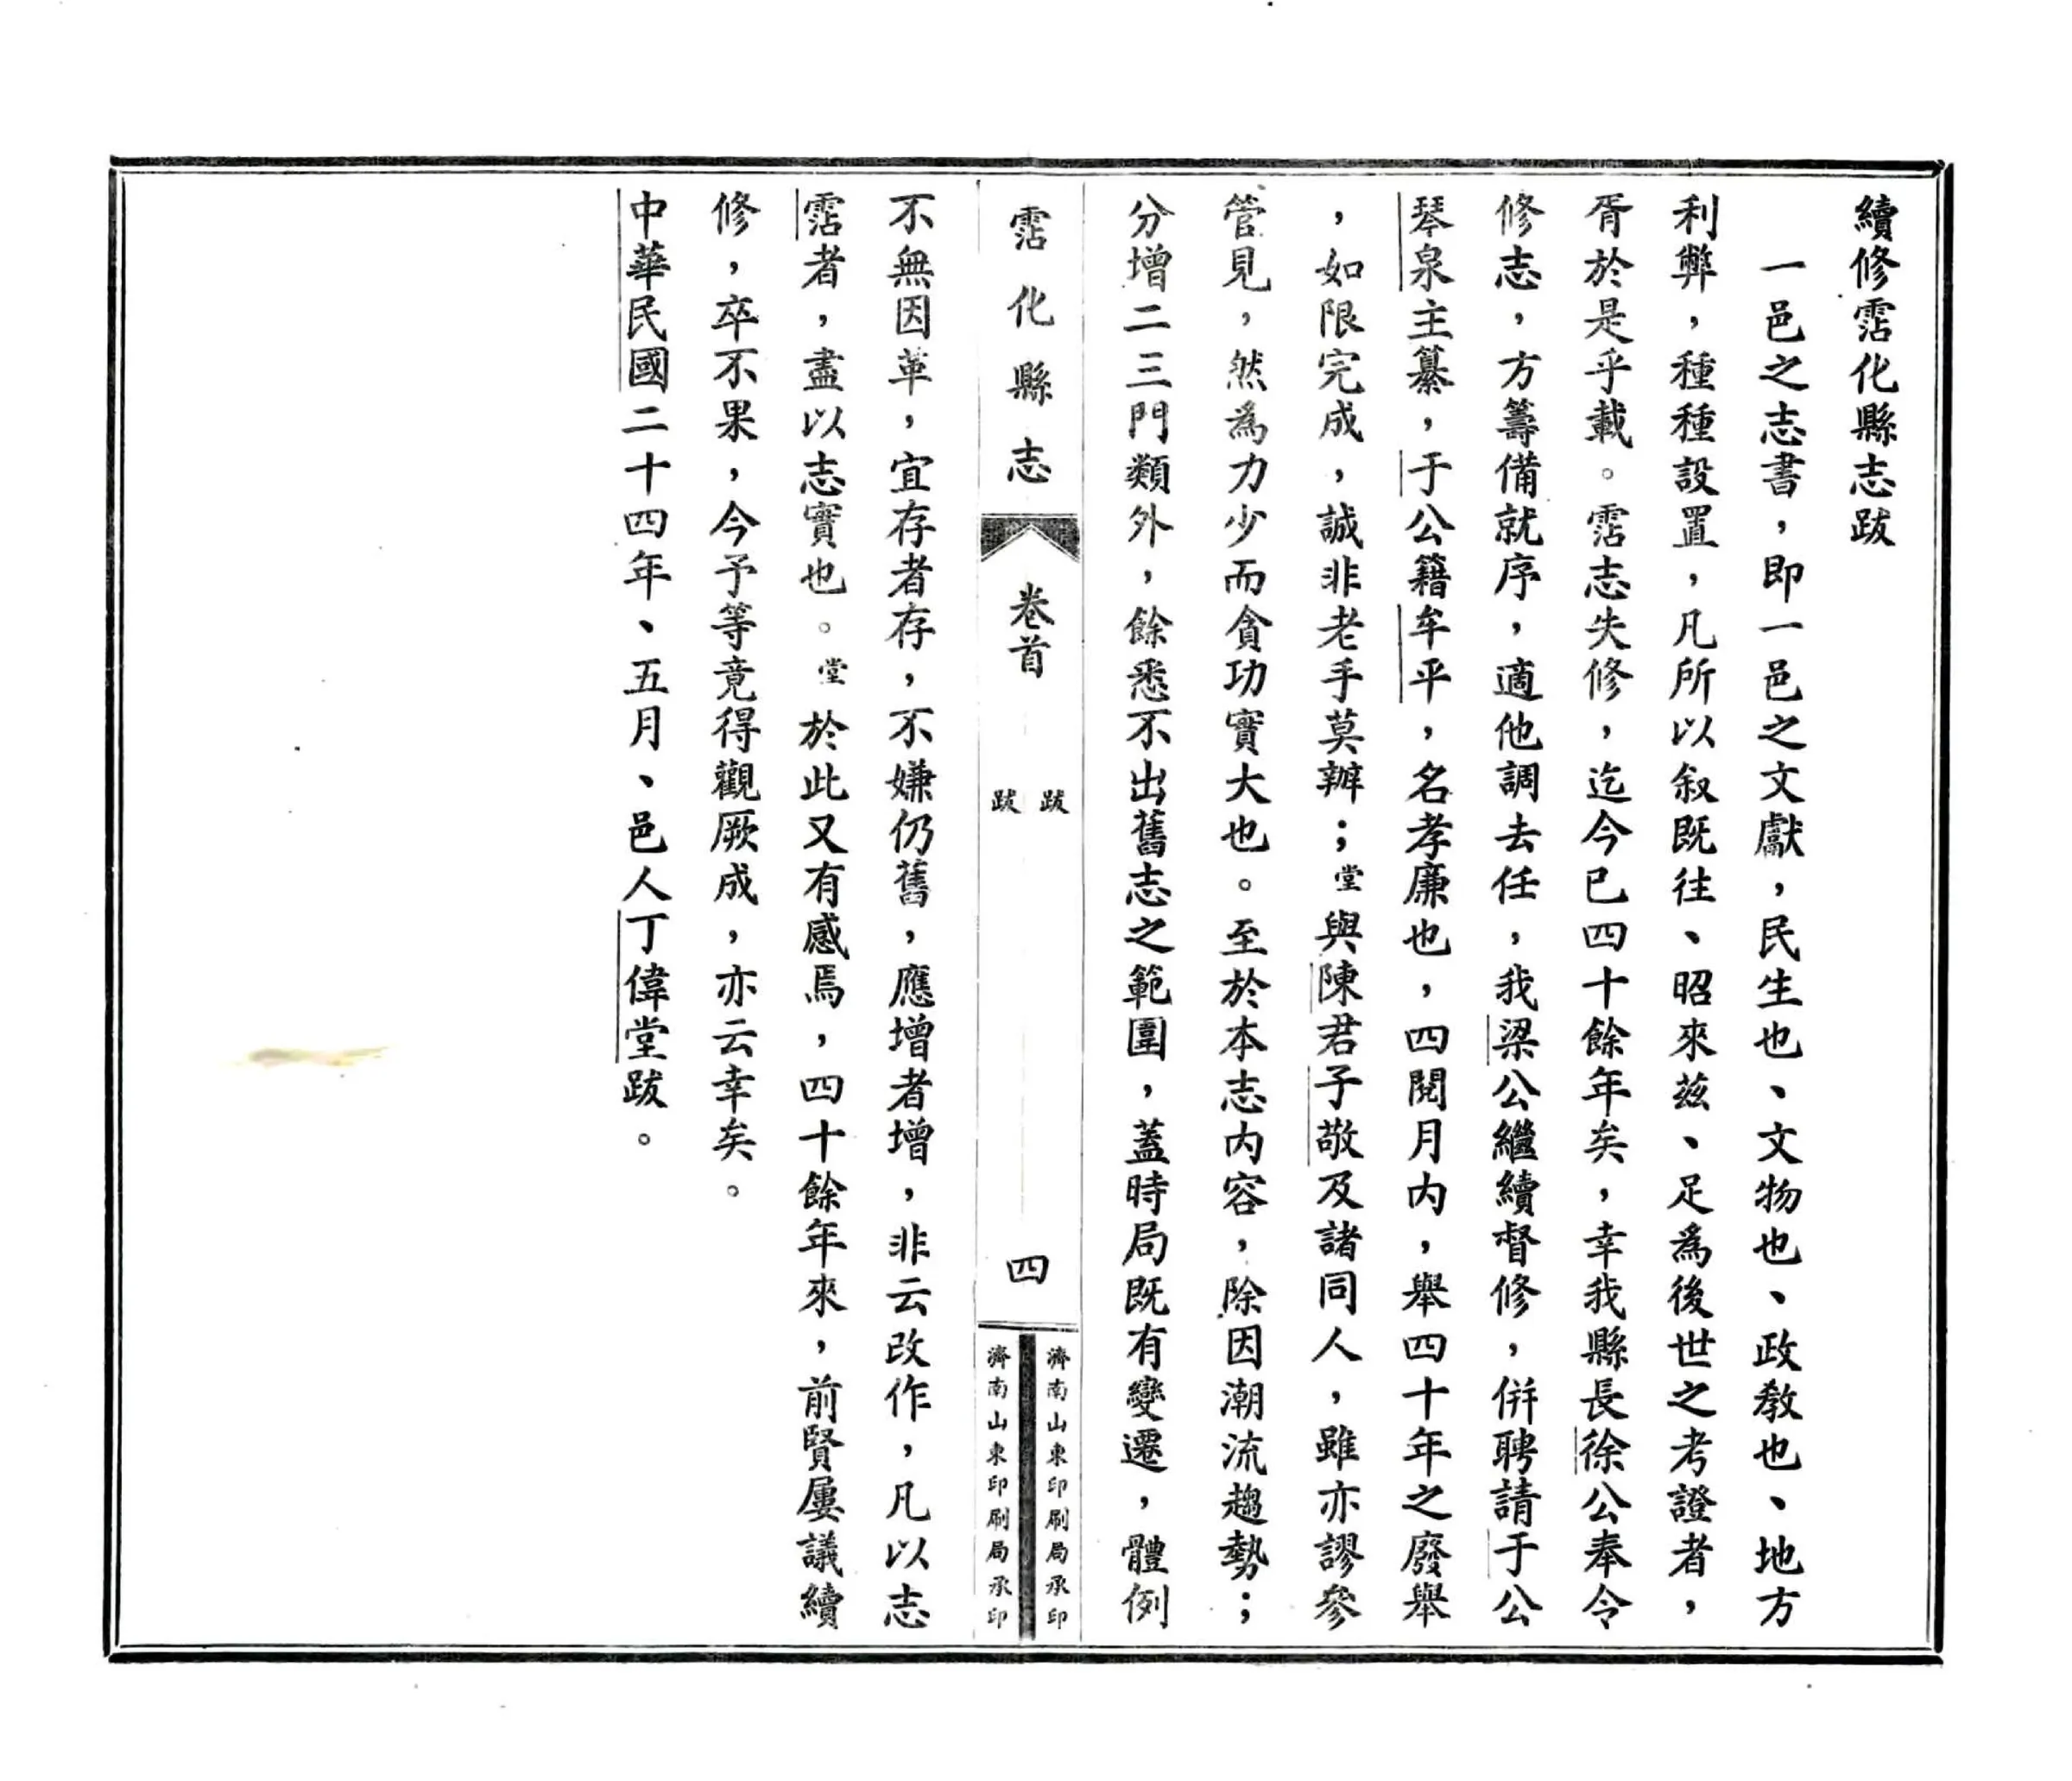 續修霑化縣志跋
一邑之志書，即一邑之文獻，民生也、文物也、政教也、地方
利弊，種種設置，凡所以叙既往、昭來茲、足為後世之考證者，
胥於是乎載。霑志失修，迄今已四十餘年矣，幸我縣長徐公奉令
修志，方籌備就序，適他調去任，我梁公繼續督修，併聘請于公
琴泉主纂，于公籍牟平，名孝廉也，四閱月內，舉四十年之廢舉
，如限完成，誠非老手莫辦；堂與陳君子敬及諸同人，雖亦謬參
管見，然為力少而貪功實大也。至於本志內容，除因潮流趨勢；
分增二三門類外，餘悉不出舊志之範圍，蓋時局既有變遷，體例
霑化縣志
卷首
跋
跋
四
濟南山東印刷局承印
濟南山東印刷局承印
不無因革，宜存者存，不嫌仍舊，應增者增，非云改作，凡以志
霑者，盡以志實也。堂於此又有感焉，四十餘年來，前賢屢議續
修，卒不果，今予等竟得觀厥成，亦云幸矣。
中華民國二十四年、五月、邑人丁偉堂跋。